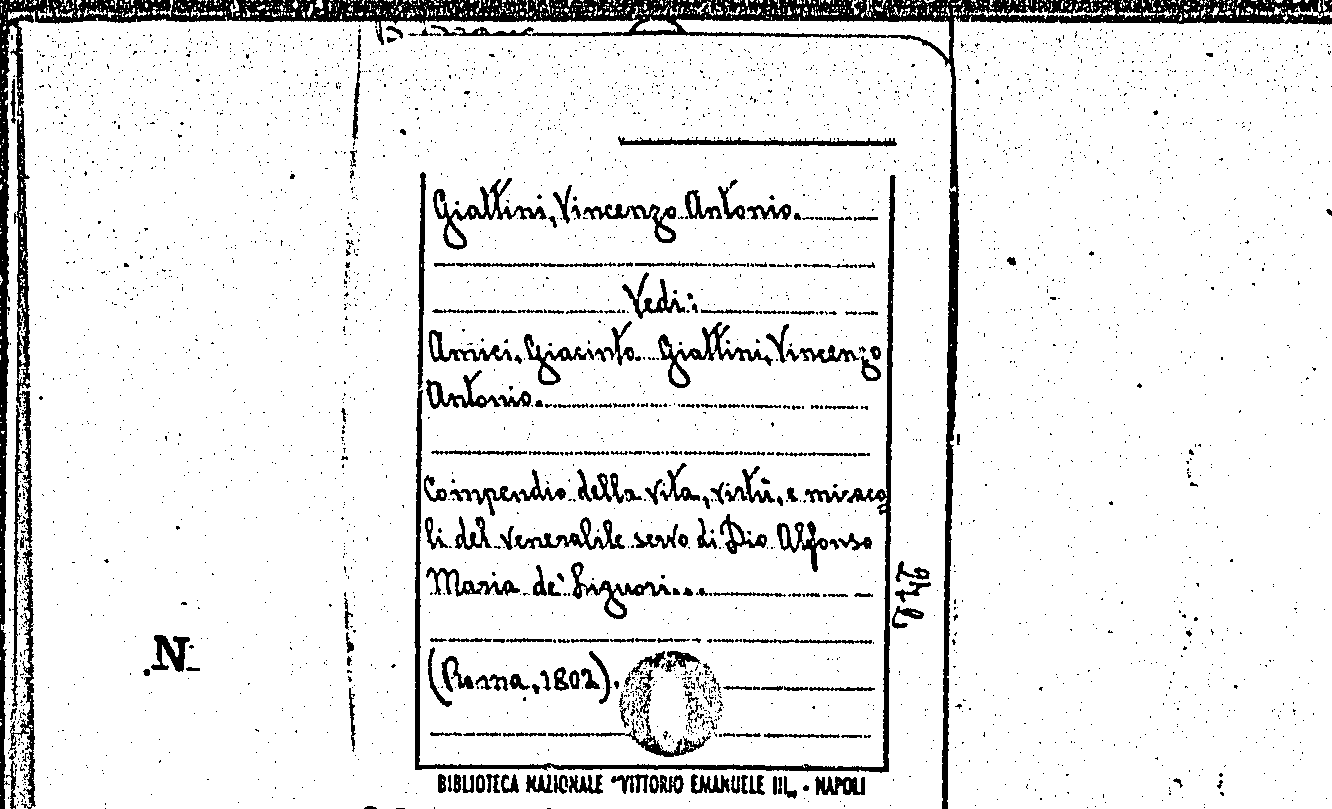 Giattini, Vincenzo Antonio.
Vedi:
Amici, Giacinto. Giattini, Vincenzo
Antonio.
Compendio della vita, virtù, e miraco
li del venerabile servo di Dio Alfonso
Maria de' Liguori...
(Roma, 1802).
N
BIBLIOTECA NAZIONALE "VITTORIO EMANUELE III„ - NAPOLI